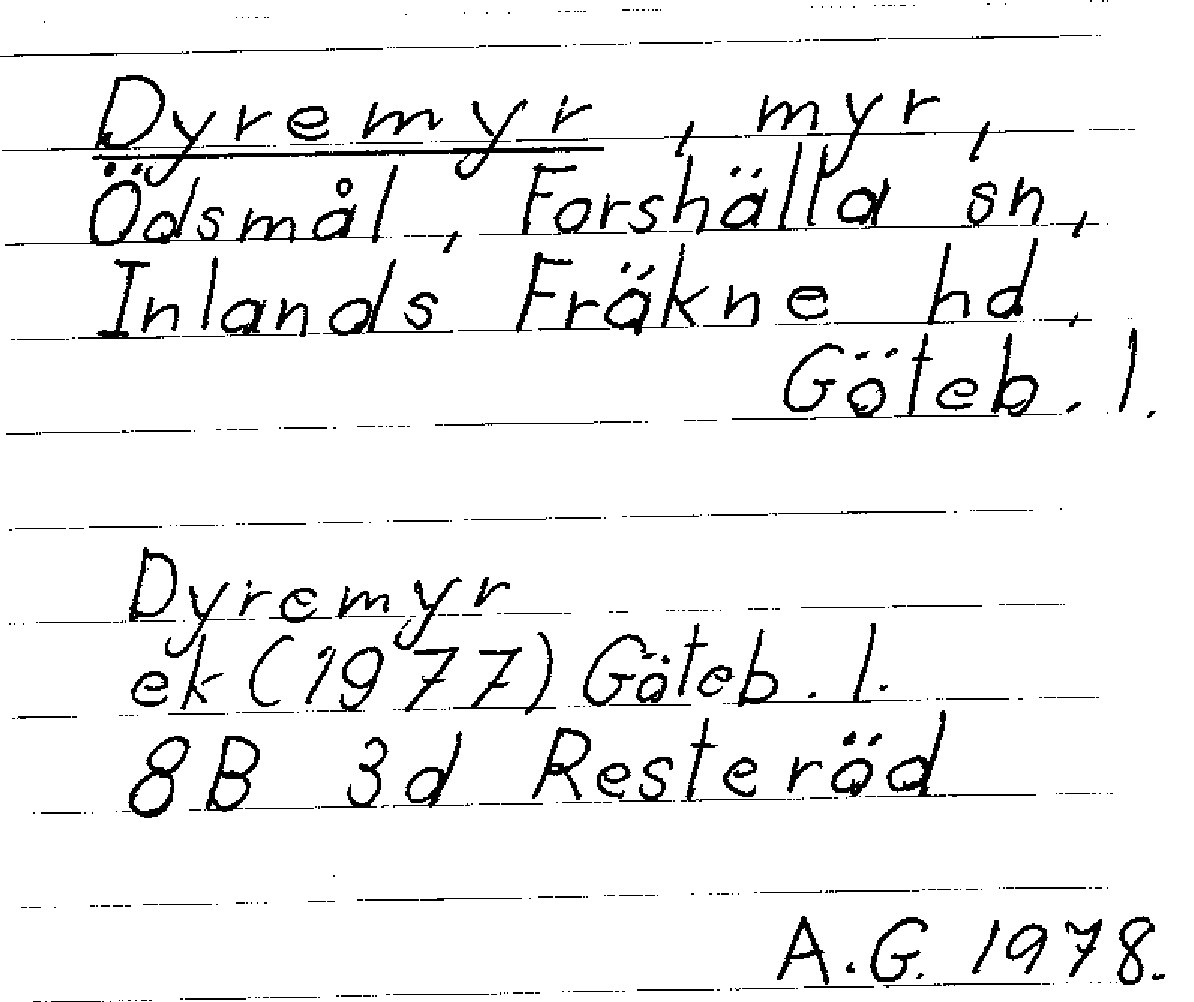 Dyremyr, myr,
Ödsmål, Forshälla sn,
Inlands Fräkne hd,
Göteb. l.
Dyremyr
ek (1977) Göteb. l.
8B 3d Resteröd
A.G. 1978.